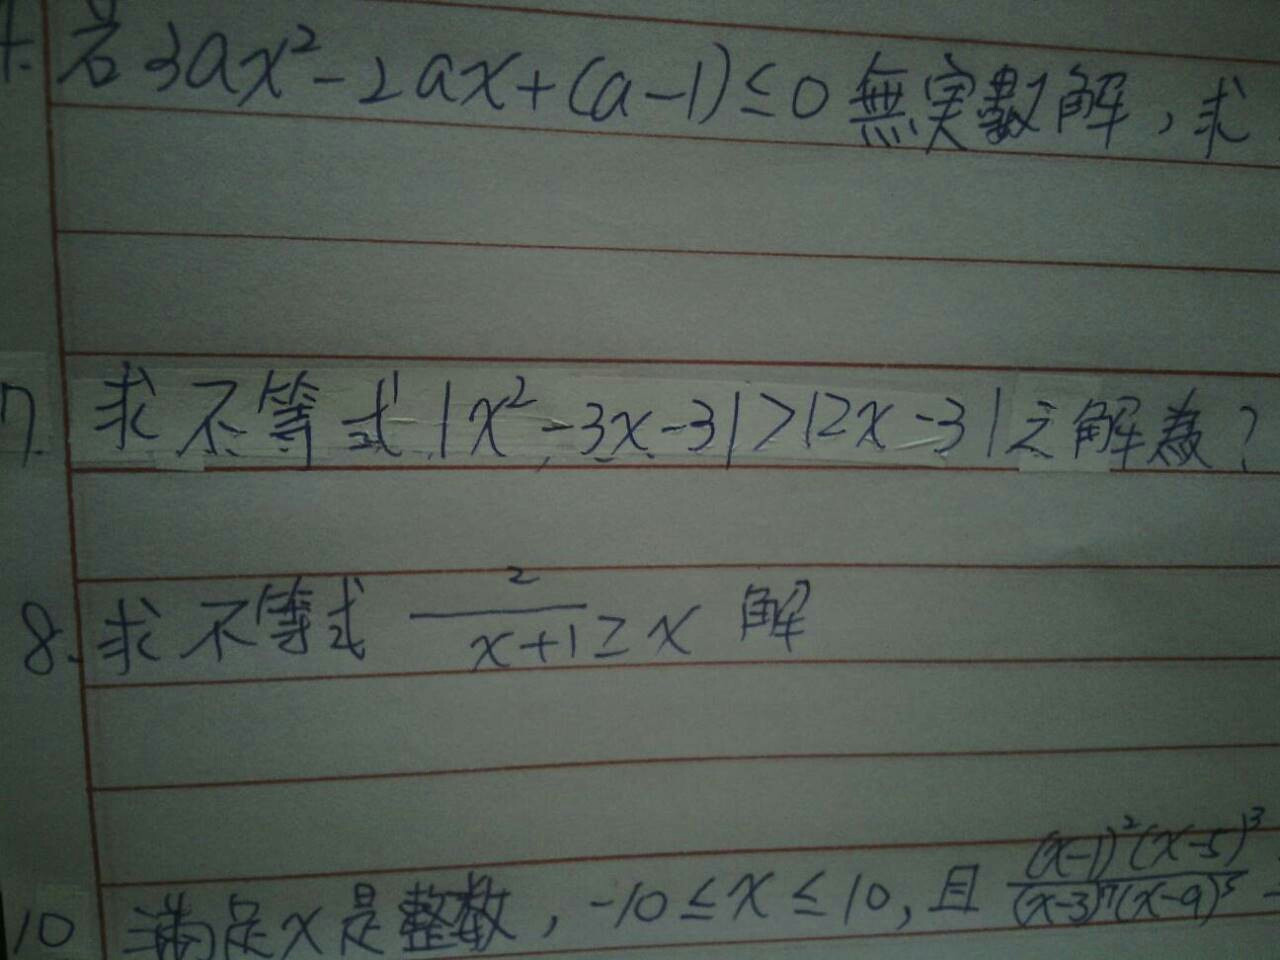 若 3ax² - 2ax + (a-1) ≤ 0 無実數解，求
7. 求不等式 |x² - 3x - 3| > |2x - 3| 之解為？
8. 求不等式 2/(x+1) ≥ x 解
10 滿足x是整数，-10 ≤ x ≤ 10，且 (x-1)²(x-5)³/(x-3)⁷(x-9)⁵